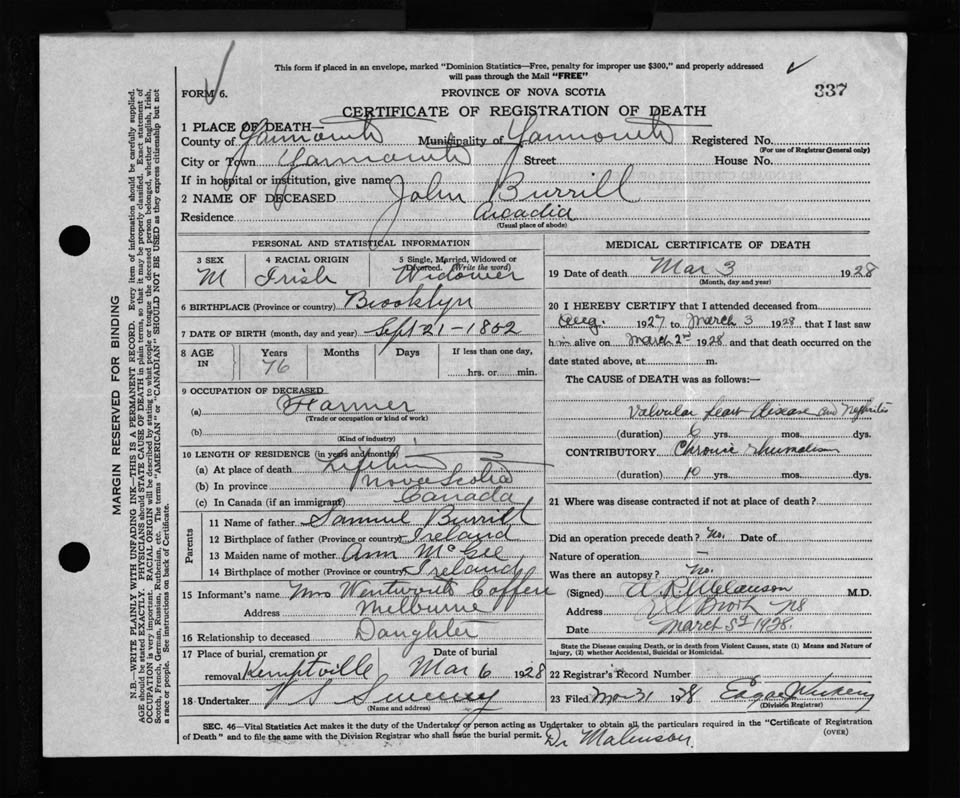 This form if placed in an envelope, marked "Dominion Statistics—Free, penalty for improper use $300," and properly addressed
will pass through the Mail "FREE"
FORM 6.
PROVINCE OF NOVA SCOTIA
337
CERTIFICATE OF REGISTRATION OF DEATH
1 PLACE OF DEATH—
County of Yarmouth Municipality of Yarmouth Registered No.
(For use of Registrar General only)
City or Town Yarmouth Street House No.
If in hospital or institution, give name
2 NAME OF DECEASED John Burrill
Residence Arcadia
(Usual place of abode)
PERSONAL AND STATISTICAL INFORMATION
3 SEX 4 RACIAL ORIGIN 5 Single, Married, Widowed or
Divorced. (Write the word)
M Irish Widower
6 BIRTHPLACE (Province or country) Brooklyn
7 DATE OF BIRTH (month, day and year) Sept 21-1852
8 AGE IN Years Months Days If less than one day,
76 hrs. or min.
9 OCCUPATION OF DECEASED
(a) Farmer
(Trade or occupation or kind of work)
(b)
(Kind of industry)
10 LENGTH OF RESIDENCE (in years and months)
(a) At place of death Lifetime
(b) In province Nova Scotia
(c) In Canada (if an immigrant) Canada
Parents
11 Name of father Samuel Burrill
12 Birthplace of father (Province or country) Ireland
13 Maiden name of mother Ann McGee
14 Birthplace of mother (Province or country) Ireland
15 Informant's name Mrs Wentworth
Address Melbourne
16 Relationship to deceased Daughter
17 Place of burial, cremation or Date of burial
removal Kemptville Mar 6 1928
18 Undertaker V S Sweeney
(Name and address)
MEDICAL CERTIFICATE OF DEATH
19 Date of death Mar 3 1928
(Month, day and year)
20 I HEREBY CERTIFY that I attended deceased from
Aug. 1927 to March 3 1928 that I last saw
him alive on March 2nd 1928 and that death occurred on the
date stated above, at m.
The CAUSE of DEATH was as follows:—
Valvular heart disease and Nephritis
(duration) 6 yrs. mos. dys.
CONTRIBUTORY Chronic rheumatism
(duration) 10 yrs. mos. dys.
21 Where was disease contracted if not at place of death?
Did an operation precede death? No. Date of
Nature of operation —
Was there an autopsy? No.
(Signed) M.D.
Address NS
Date March 5th 1928.
State the Disease causing Death, or in death from Violent Causes, state (1) Means and Nature of
Injury, (2) whether Accidental, Suicidal or Homicidal.
22 Registrar's Record Number
23 Filed Mar 31 1928 Edgar
(Division Registrar)
SEC. 46—Vital Statistics Act makes it the duty of the Undertaker or person acting as Undertaker to obtain all the particulars required in the "Certificate of Registration
of Death" and to file the same with the Division Registrar who shall issue the burial permit.
(OVER)
Dr
MARGIN RESERVED FOR BINDING
N.B.—WRITE PLAINLY WITH UNFADING INK—THIS IS A PERMANENT RECORD. Every item of information should be carefully supplied.
AGE should be stated EXACTLY. PHYSICIANS should STATE CAUSE OF DEATH in plain terms, so that it may be properly classified. Exact statement of
OCCUPATION is very important. RACIAL ORIGIN will be described by stating to what people or tongue the deceased person belonged, whether English, Irish,
Scotch, French, German, Russian, Ruthenian, etc. The terms "AMERICAN" or "CANADIAN" SHOULD NOT BE USED as they express citizenship but not
a race or people. See instructions on back of Certificate.